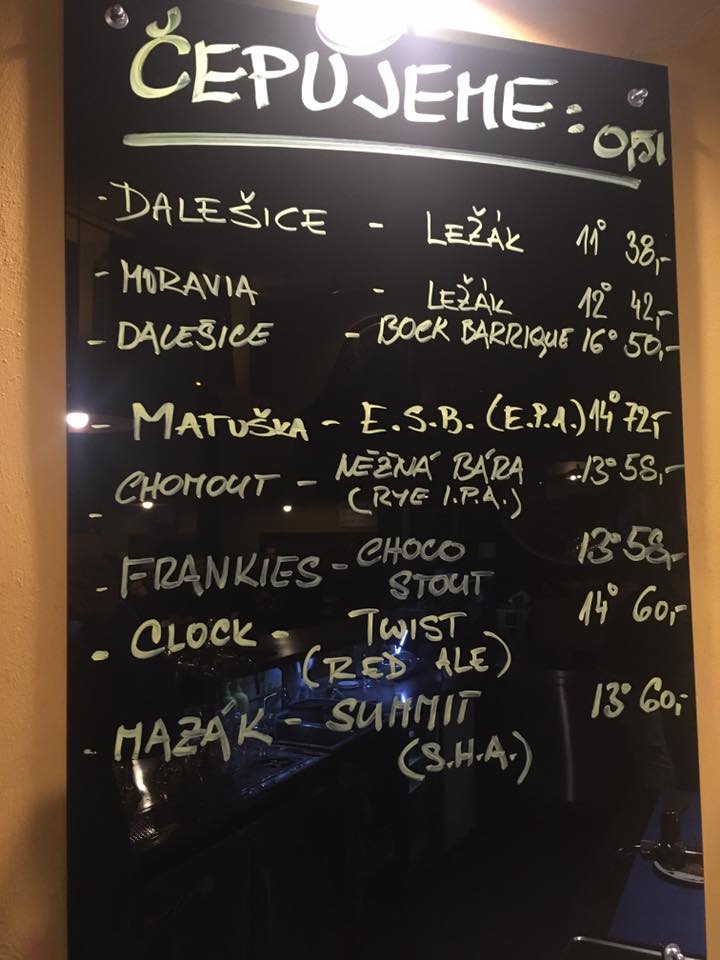 ČEPUJEME: 0,5l
- DALEŠICE - LEŽÁK 11° 38,-
- MORAVIA - LEŽÁK 12° 42,-
- DALEŠICE - BOCK BARRIQUE 16° 50,-
- MATUŠKA - E.S.B. (E.P.A.) 14° 72,-
- CHOMOUT - NĚŽNÁ BÁRA 13° 58,-
(RYE I.P.A.)
- FRANKIES - CHOCO 13° 58,-
STOUT
- CLOCK - TWIST 14° 60,-
(RED ALE)
- MAZÁK - SUMMIT 13° 60,-
(S.H.A.)